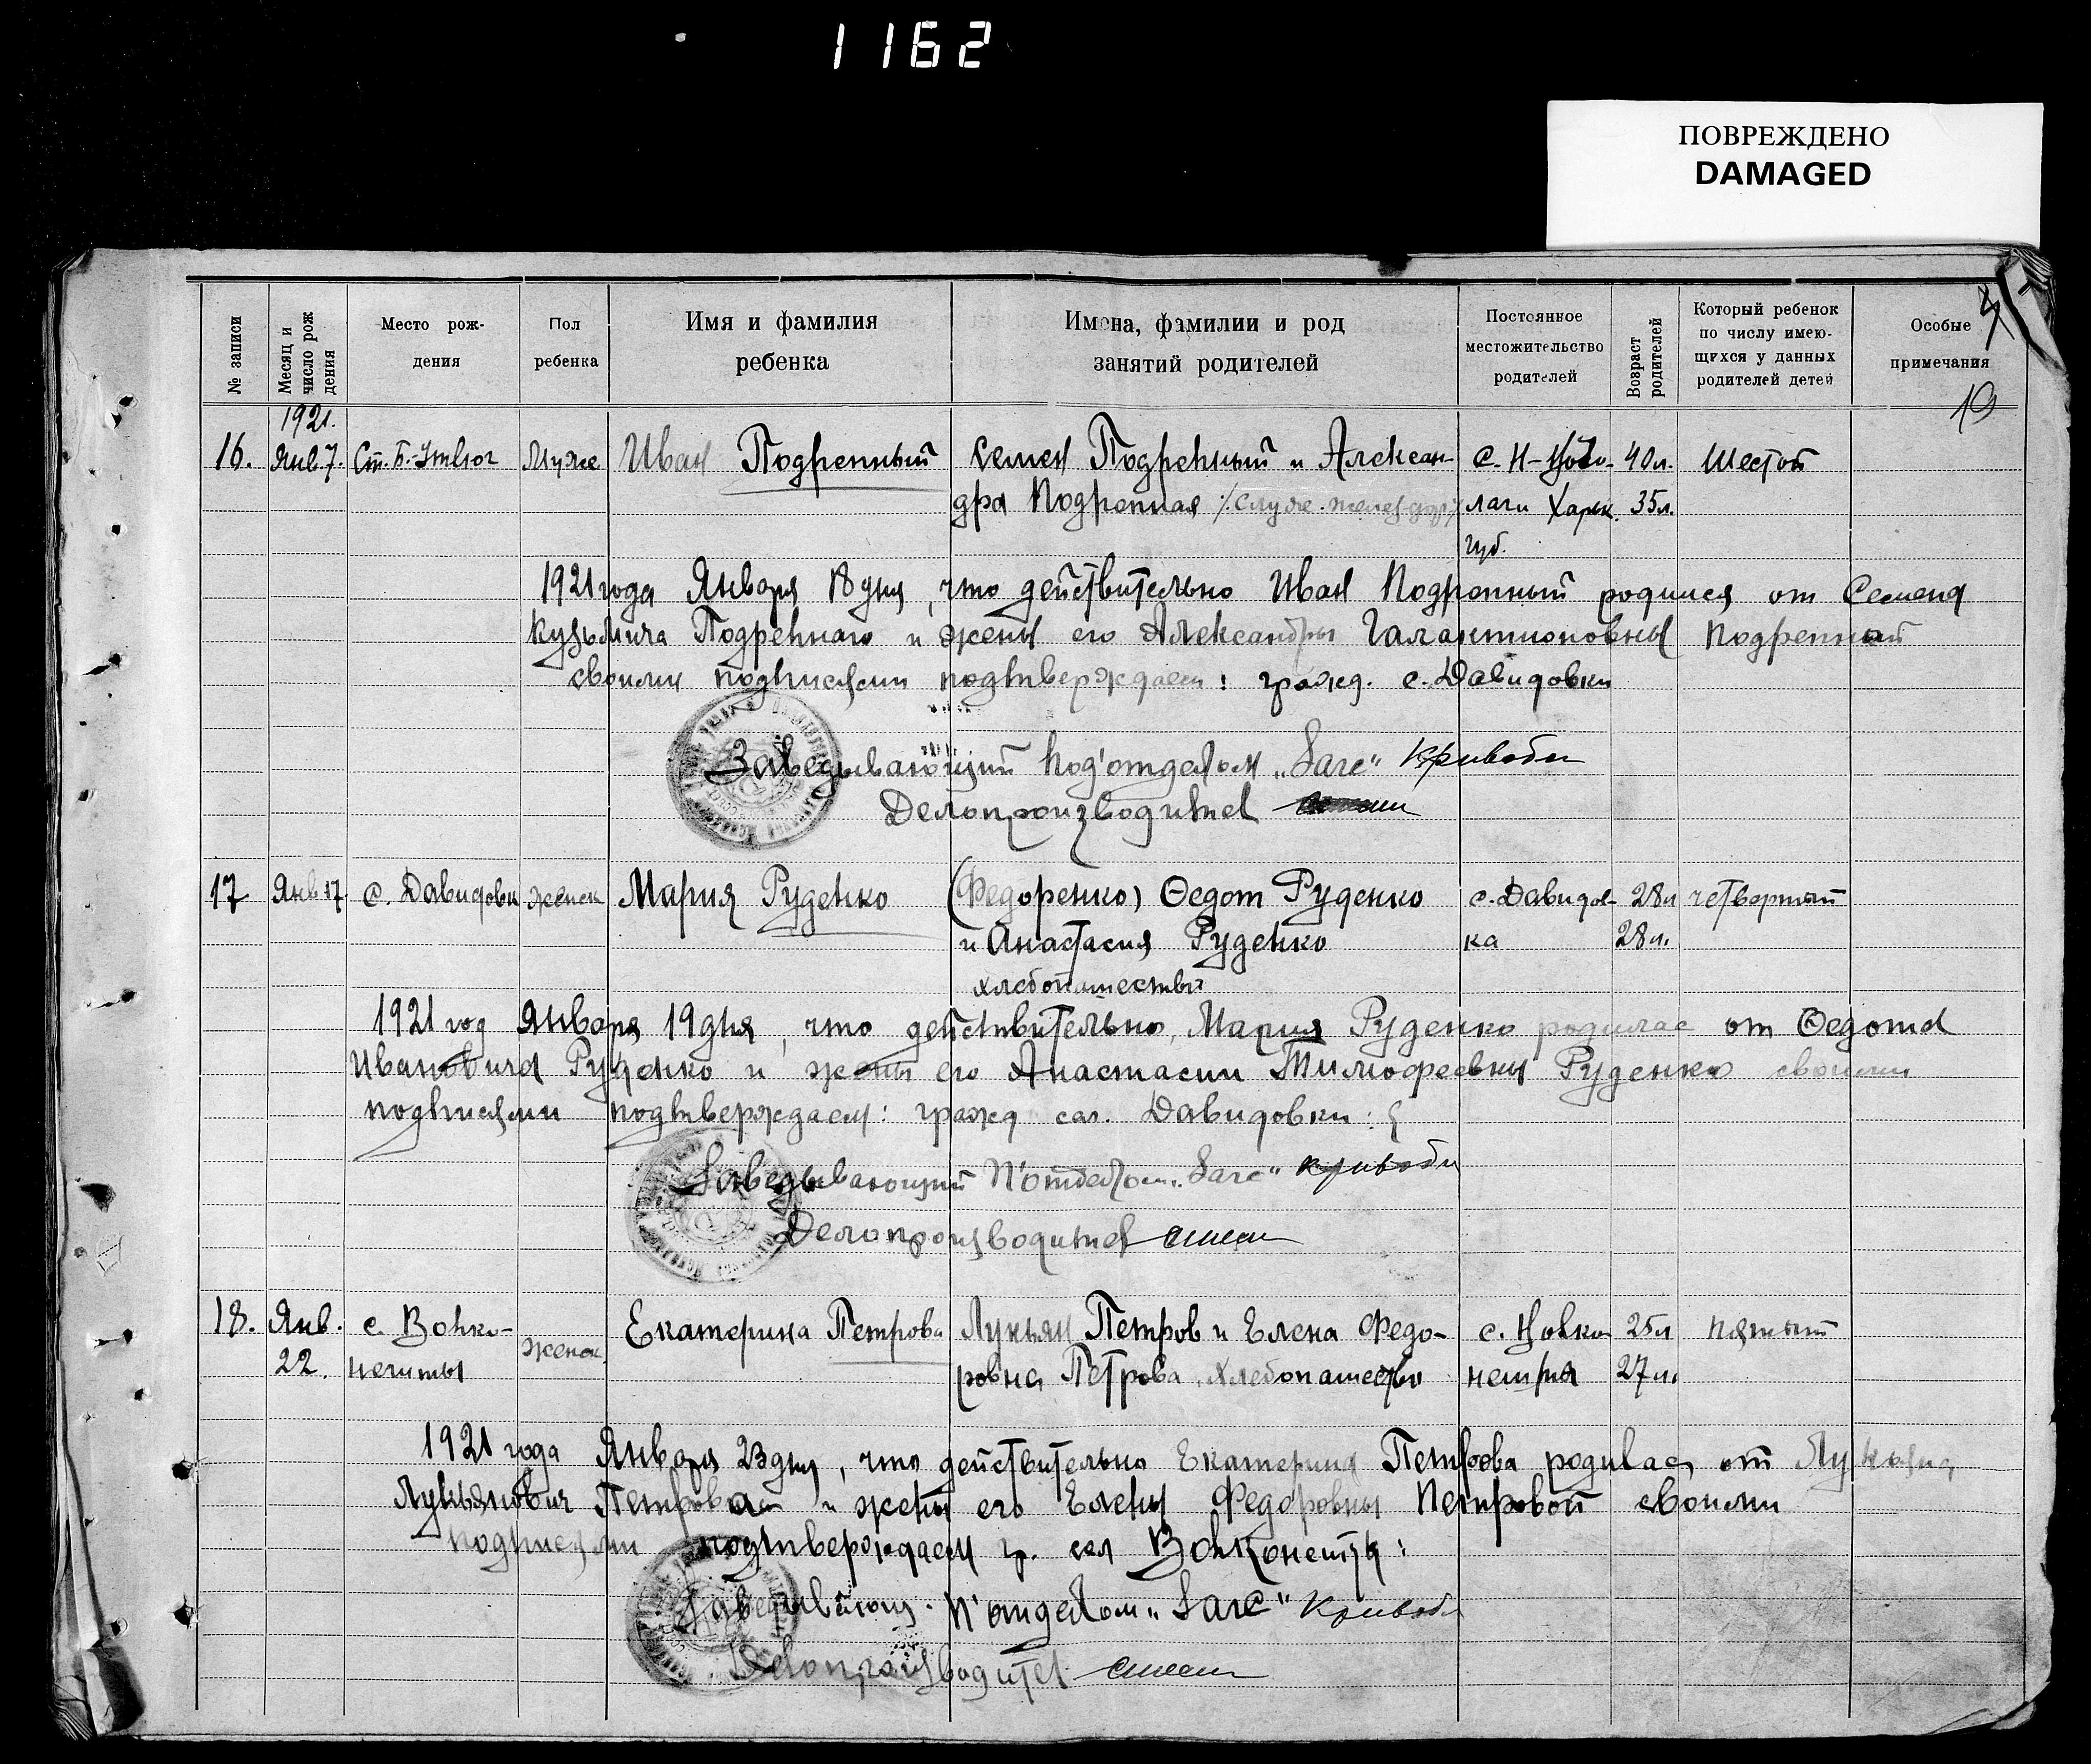 1162
ПОВРЕЖДЕНО
DAMAGED
№ записи
Месяц и число рож дения
Место рож-
дения
Пол
ребенка
Имя и фамилия
ребенка
Имена, фамилии и род
занятий родителей
Постоянное
местожительство
родителей
Возраст родителей
Который ребенок
по числу имею-
щихся у данных
родителей детей
Особые
примечания
19
1921.
16. Янв. 7. Ст. Муже Иван Подрепный Семен Подрепный и Алексан- с. 40 л. Шестой
дра Подрепная Харк. 35 л.
губ.
1921 года Января 18 дня, что действительно Иван Подрепный родился от Семена
Кузьмича Подрепнаго и жены его Александры Галактионовны Подрепной
своими подписями подтверждаем: гражд. с. Давидовки
Заведывающий под'отделом „Загс"
Делопроизводител
17 Янв 17 с. Давидовк женск Мария Руденко (Федоренко) Ѳедот Руденко с. Давидов- 28 л четвертый
и Анастасия Руденко ка 28 л.
хлебопашество
1921 год Января 19 дня, что действительно, Мария Руденко родилас от Ѳедота
Ивановича Руденко и жены его Анастасии Тимофеевны Руденко своими
подписями подтверждаем: гражд сел. Давидовки:
Заведывающий П'отделом „Загс"
Делопроизводител
18. Янв. с. Екатерина Петрова Лукьян Петров и Елена Федо- с. 25 л пятый
22. женск. ровна Петрова, Хлебопашество 27 л.
1921 года Января 23 дня, что действительно Екатерина Петрова родилас от Лукьяна
Лукьянович Петрова и жены его Елены Федоровны Петровой своими
подписями подтверждаем гр. сел
Заведывающ. П'отделом „Загс"
Делопроизводител